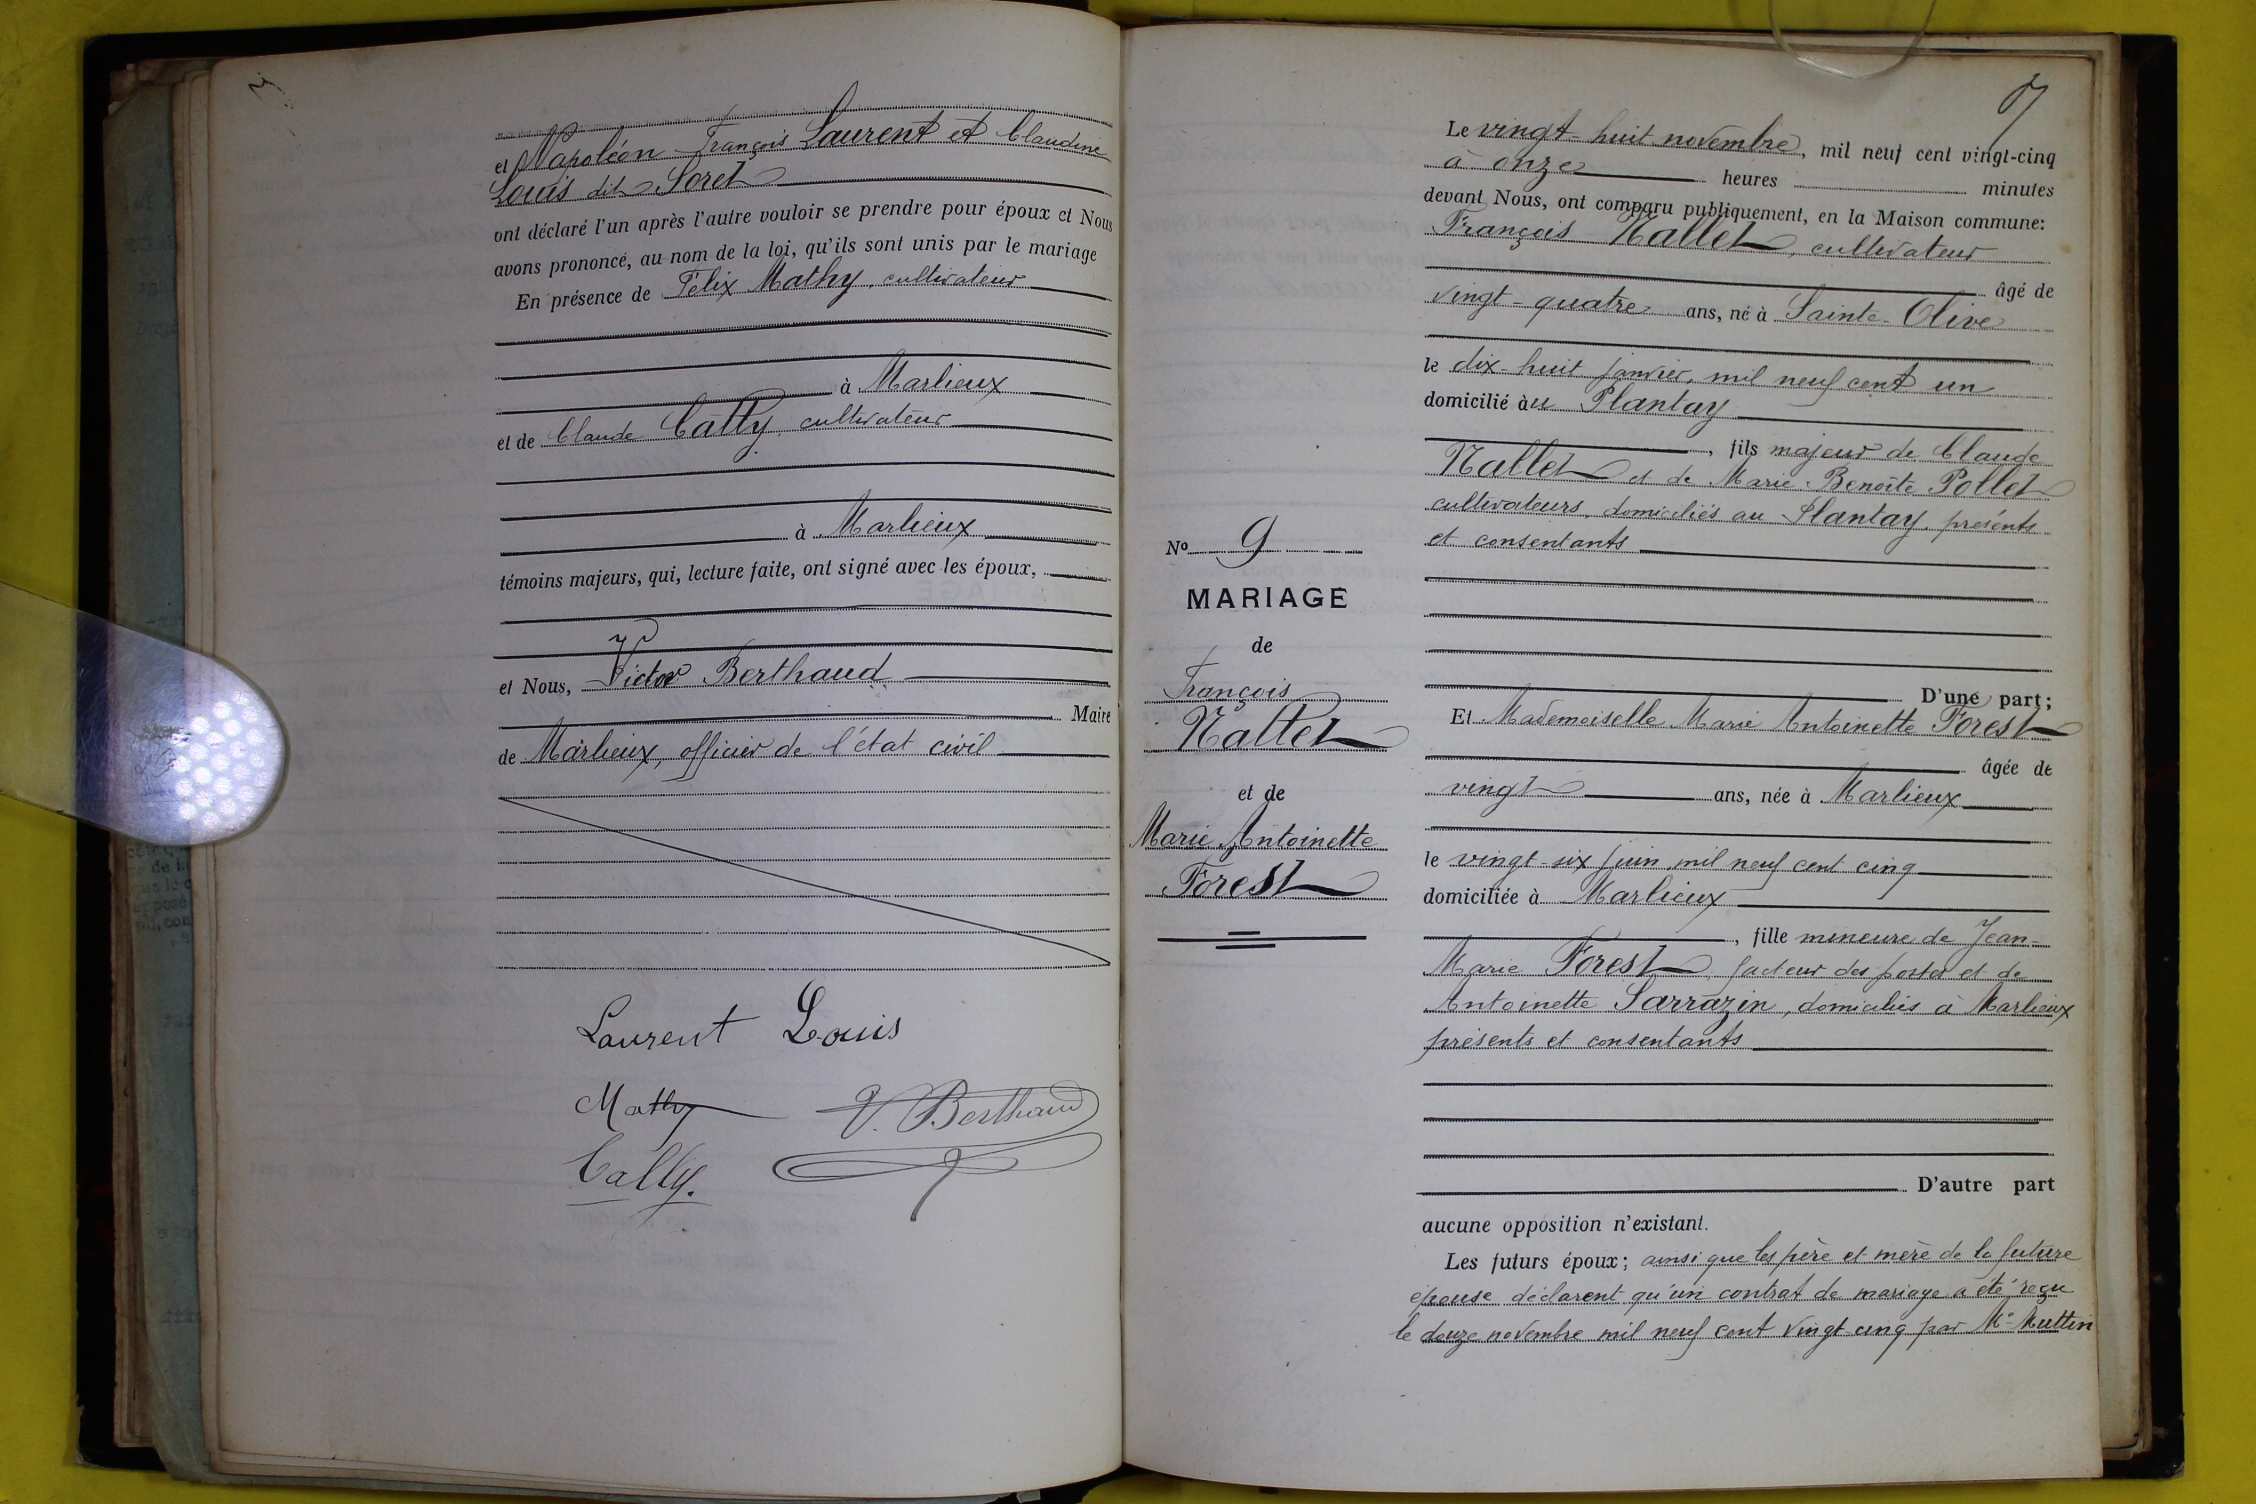 et Napoléon François Laurent et Claudine
Louis dit Soret
ont déclaré l'un après l'autre vouloir se prendre pour époux et Nous
avons prononcé, au nom de la loi, qu'ils sont unis par le mariage
En présence de Félix Mathy, cultivateur
à Marlieux
et de Claude Cally, cultivateur
à Marlieux
témoins majeurs, qui, lecture faite, ont signé avec les époux,
et Nous, Victor Berthaud
Maire
de Marlieux, officier de l'état civil
Laurent Louis
Mathy V. Berthaud
Cally.
Le vingt-huit novembre, mil neuf cent vingt-cinq
à onze heures minutes
devant Nous, ont comparu publiquement, en la Maison commune:
François Nallet, cultivateur
âgé de
vingt-quatre ans, né à Sainte-Olive
le dix-huit janvier, mil neuf cent un
domicilié au Plantay
, fils majeur de Claude
Nallet et de Marie-Benoîte Pollet
cultivateurs, domiciliés au Plantay, présents
et consentants
D'une part;
Et Mademoiselle Marie Antoinette Forest
âgée de
vingt ans, née à Marlieux
le vingt-six juin, mil neuf cent cinq
domiciliée à Marlieux
, fille mineure de Jean-
Marie Forest, facteur des postes et de
Antoinette Sarrazin, domiciliés à Marlieux
présents et consentants
D'autre part
aucune opposition n'existant.
Les futurs époux; ainsi que les père et mère de la future
épouse déclarent qu'un contrat de mariage a été reçu
le douze novembre mil neuf cent vingt cinq par Me Muttin
No 9
MARIAGE
de
François
Nallet
et de
Marie Antoinette
Forest